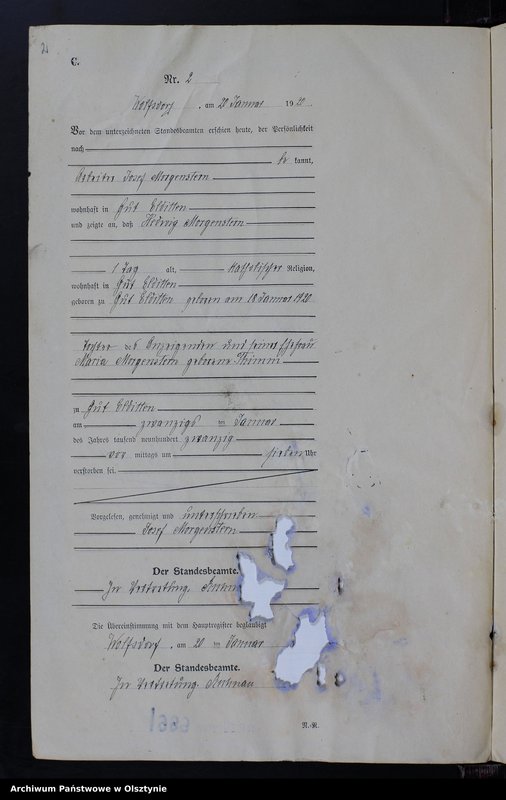 C.
Nr. 2
Wolfsdorf, am 20 Januar 1920.
Vor dem unterzeichneten Standesbeamten erschien heute, der Persönlichkeit
nach
be kannt,
Arbeiter Josef Morgenstern
wohnhaft in Gut Elditten
und zeigte an, daß Hedwig Morgenstern
1 Tag alt, katholischer Religion,
wohnhaft in Gut Elditten
geboren zu Gut Elditten geboren am 18 Januar 1920
Tochter des Anzeigenden und seiner Ehefrau
Maria Morgenstern geborene Thimm
zu Gut Elditten
am zwanzigs ten Januar
des Jahres tausend neunhundert zwanzig
vor mittags um sieben Uhr
verstorben sei.
Vorgelesen, genehmigt und unterschrieben
Josef Morgenstern
Der Standesbeamte.
In Vertretung.
Die Übereinstimmung mit dem Hauptregister beglaubigt
Wolfsdorf, am 20 ten Januar
Der Standesbeamte.
In Vertretung.
N.-R.
Archiwum Państwowe w Olsztynie